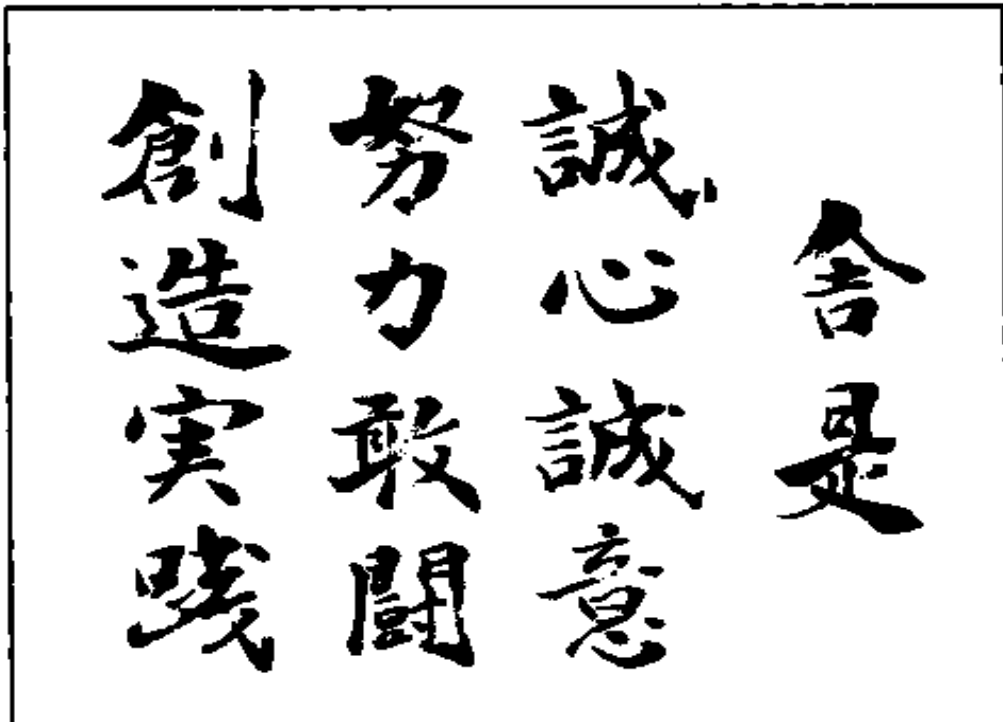 舎是
誠心誠意
努力敢闘
創造実践